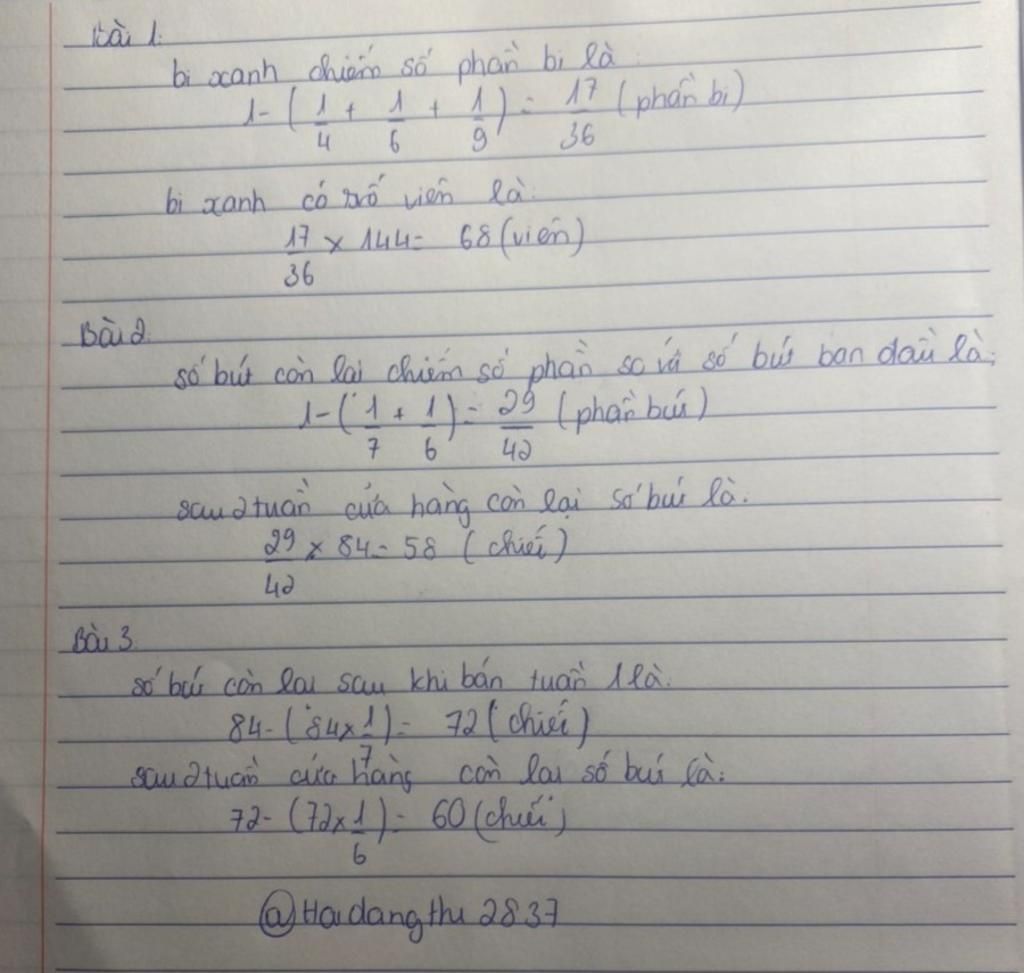 Bài 1:
bi xanh chiếm số phần bi là
1 - ( 1/4 + 1/6 + 1/9 ) = 17/36 (phần bi)
bi xanh có số viên là:
17/36 x 144 = 68 (viên)
Bài 2:
số bút còn lại chiếm số phần so với số bút ban đầu là:
1 - ( 1/7 + 1/6 ) = 29/42 (phần bút)
sau 2 tuần cửa hàng còn lại số bút là:
29/42 x 84 = 58 (chiếc)
Bài 3
số bút còn lại sau khi bán tuần 1 là:
84 - ( 84 x 1/7 ) = 72 (chiếc)
sau 2 tuần cửa hàng còn lại số bút là:
72 - (72 x 1/6 ) = 60 (chiếc)
@Haidangthu2837